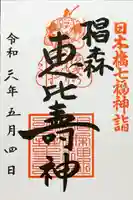 日本橋七福神詣
椙森
恵比壽神
令和 年五月四日